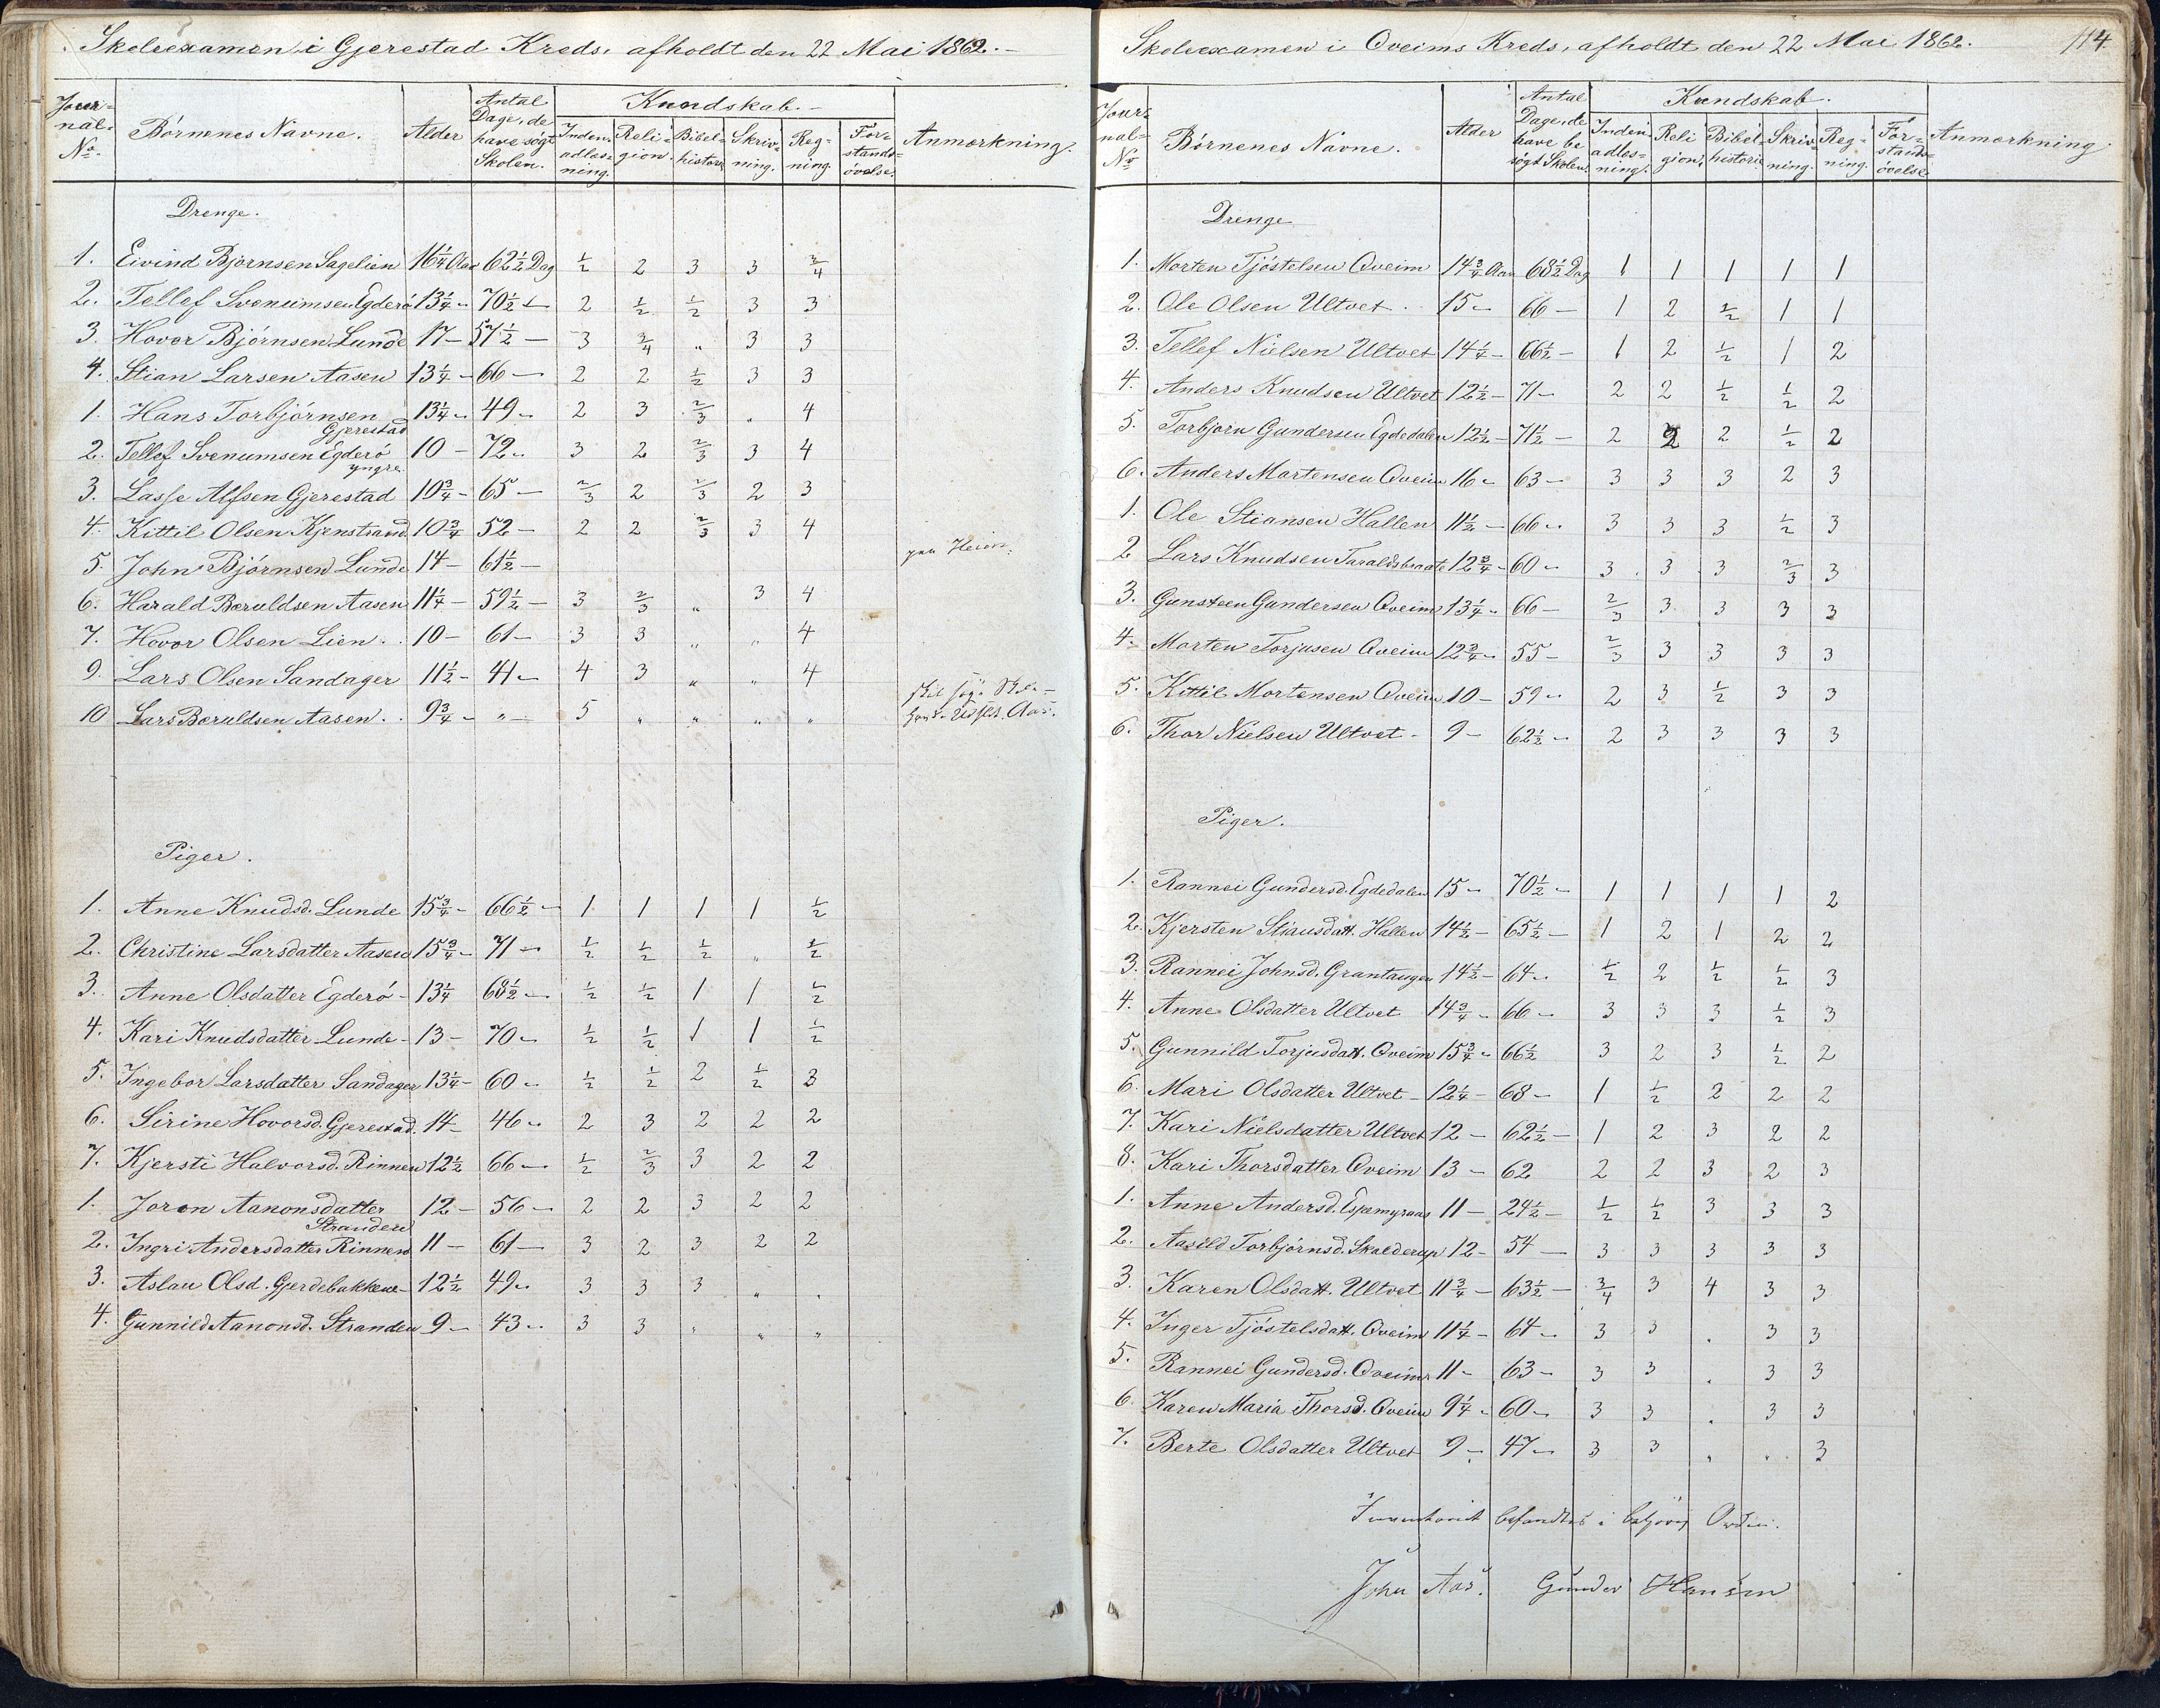 Skoleexamen i Gjerestad Kreds, afholdt den 22 Mai 1862.
Jour-nal-No. | Børnenes Navne. | Alder | Antal Dage, de have søgt Skolen. | Kundskab. | Anmærkning.
Inden-adlæs-ning. | Reli-gion. | Bibel-historie | Skriv-ning. | Reg-ning. | For-stands-øvelse.
Drenge.
1. Eivind Bjørnsen Sagelien 16 1/4 Aar 62 1/2 Dag 1/2 2 3 3 3/4
2. Tellef Svenumsen Egderø 13 1/4 " 70 1/2 - 2 1/2 1/2 3 3
3. Hovor Bjørnsen Lunde 17 - 57 1/2 - 3 3/4 " 3 3
4. Stian Larsen Aasen 13 1/4 - 66 - 2 2 1/2 3 3
1. Hans Torbjørnsen Gjerestad 13 1/4 " 49 " 2 3 2/3 " 4
2. Tellef Svenumsen Egderø yngre. 10 - 72 " 3 2 2/3 3 4
3. Lasse Alfsen Gjerestad 10 3/4 - 65 - 2/3 2 2/3 2 3
4. Kittil Olsen Kjenstrand 10 3/4 52 - 2 2 2/3 3 4
5. John Bjørnsen Lunde 14 - 61 1/2 -
6. Harald Bæruldsen Aasen 11 1/4 - 59 1/2 - 3 2/3 " 3 4
7. Hovor Olsen Lien. 10 - 61 - 3 3 " " 4
9. Lars Olsen Sandager 11 1/2 - 41 " 4 3 " " 4
10 Lars Bæruldsen Aasen. 9 3/4 - " - 5 " " " "
Piger.
1. Anne Knudsd. Lunde 15 3/4 - 66 1/2 - 1 1 1 1 1/2
2. Christine Larsdatter Aasen 15 3/4 - 71 - 1/2 1/2 1/2 " 1/2
3. Anne Olsdatter Egderø - 13 1/4 68 1/2 - 1/2 1/2 1 1 1/2
4. Kari Knudsdatter Lunde - 13 - 70 " 1/2 1/2 1 1 1/2
5. Ingebor Larsdatter Sandager 13 1/4 - 60 " 1/2 1/2 2 1/2 3
6. Sirine Hovorsd. Gjerestad. 14 - 46 " 2 3 2 2 2
7. Kjersti Halvorsd. Rinnen 12 1/2 66 - 1/2 2/3 3 2 2
1. Joron Aanonsdatter Stranden 12 - 56 - 2 2 3 2 2
2. Ingri Andersdatter Rinnen 11 - 61 - 3 2 3 2 2
3. Aslau Olsd. Gjerdebakkene - 12 1/2 49 " 3 3 3 " "
4. Gunnild Aanonsd. Stranden 9 - 43 " 3 3 " " "
Skoleexamen i Oveims Kreds, afholdt den 22 Mai 1862.
114
Jour-nal-No | Børnenes Navne. | Alder | Antal Dage, de have be søgt Skolen. | Kundskab. | Anmærkning.
Inden-adlæs-ning. | Reli gion. | Bibel-historie | Skriv-ning. | Reg-ning. | For-stands-øvelse
Drenge
1. Morten Tjøstelsen Oveim 14 3/4 Aar 68 1/2 Dag 1 1 1 1 1
2. Ole Olsen Ultvet. 15 - 66 - 1 2 1/2 1 1
3. Tellef Nielsen Ultvet 14 1/4 - 66 1/2 - 1 2 1/2 1 2
4. Anders Knudsen Ultvet 12 1/2 - 71 - 2 2 1/2 1/2 2
5. Torbjørn Gundersen Egdedalen 12 1/2 - 71 1/2 - 2 2 2 1/2 2
6. Anders Mortensen Oveim 16 " 63 - 3 3 3 2 3
1. Ole Stiansen Hallen 11 1/2 - 66 " 3 3 3 1/2 3
2 Lars Knudsen Taraldsbraate 12 3/4 - 60 " 3 3 3 2/3 3
3. Gunsteen Gundersen Oveim 13 1/4 " 66 - 2/3 3 3 3 3
4. Morten Torjusen Oveim 12 3/4 " 55 - 2/3 3 3 3 3
5. Kittil Mortensen Oveim 10 - 59 " 2 3 1/2 3 3
6. Thor Nielsen Ultvet - 9 - 62 1/2 " 2 3 3 3 3
Piger.
1. Rannei Gundersd. Egdedalen 15 - 70 1/2 - 1 1 1 1 2
2. Kjersten Stiansdatt. Hallen 14 1/2 - 65 1/2 - 1 2 1 2 2
3. Rannei Johnsd. Grantangen 14 1/2 - 64 " 1/2 2 1/2 1/2 3
4. Anne Olsdatter Ultvet 14 3/4 " 66 - 3 3 3 1/2 3
5. Gunnild Torjusdatt. Oveim 15 3/4 " 66 1/2 3 2 3 1/2 2
6. Mari Olsdatter Ultvet - 12 1/4 - 68 - 1 1/2 2 2 2
7. Kari Nielsdatter Ultvet 12 - 62 1/2 - 1 2 3 2 2
8. Kari Thorsdatter Oveim 13 - 62 2 2 3 2 3
1. Anne Andersd. Espemyraas 11 - 24 1/2 - 1/2 1/2 3 3 3
2. Aasild Torbjørnsd. Skalderup 12 - 54 - 3 3 3 3 3
3. Karen Olsdatt. Ultvet 11 3/4 - 63 1/2 - 3/4 3 4 3 3
4. Inger Tjøstelsdatt. Oveim 11 1/4 - 64 " 3 3 " 3 3
5. Rannei Gundersd. Oveim 11 - 63 - 3 3 " 3 3
6. Karen Maria Thorsd. Oveim 9 1/4 " 60 - 3 3 " 3 3
7. Berte Olsdatter Ultvet 9 - 47 - 3 3 " " 3
Inventariet befandtes i behørig Orden.
John Aas. Gunder Hansen